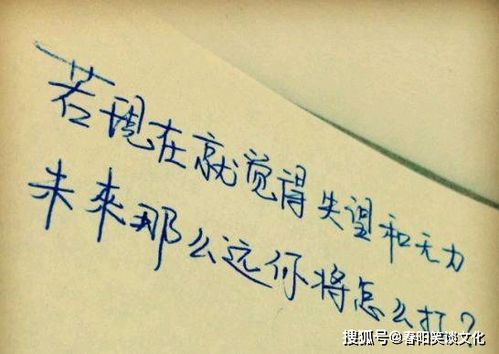 若现在就觉得失望和无力
未来那么远你将怎么打?
搜狐号@春阳笑谈文化